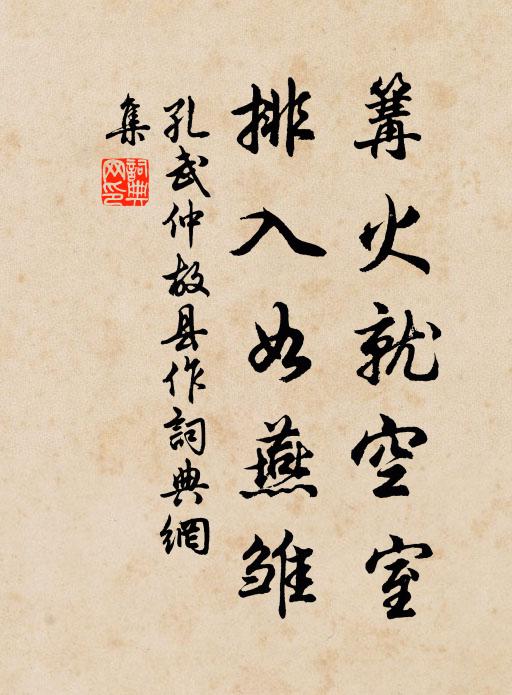 篝火就空室
排入如燕雏
孔武仲故县作詞典網
集
詞典
网印